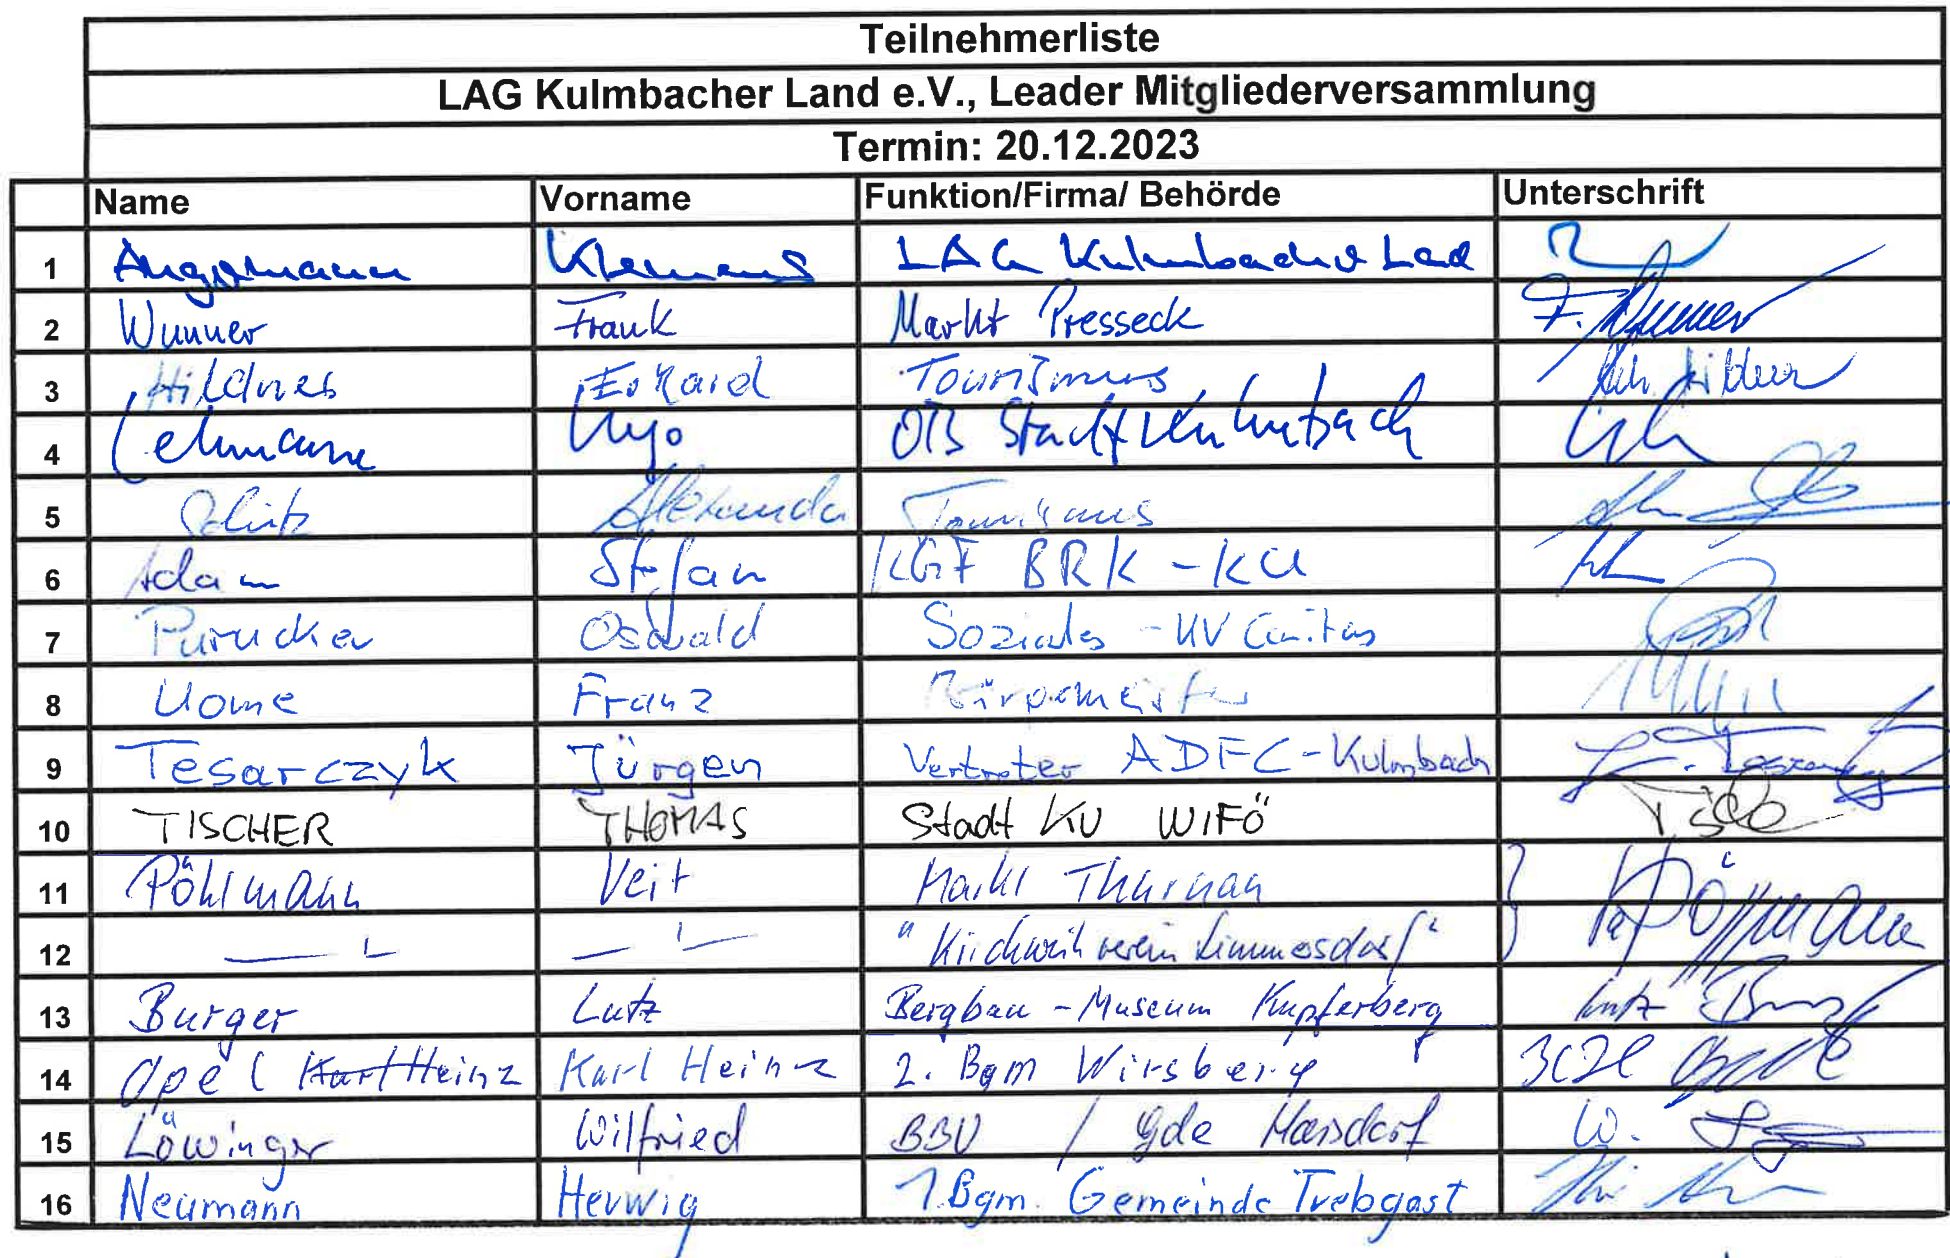 Teilnehmerliste
LAG Kulmbacher Land e.V., Leader Mitgliederversammlung
Termin: 20.12.2023
Name Vorname Funktion/Firma/ Behörde Unterschrift
1 Angermann Klemens LAG Kulmbacher Land
2 Wunner Frank Markt Presseck F. Wunner
3 Hildner Erhard Tourismus
4 Lehmann Ingo OB Stadt Kulmbach
5 Schütz Alexander Tourismus
6 Adam Stefan KGF BRK - KU
7 Purucker Oswald Soziales - KV Caritas
8 Uome Franz Bürgermeister
9 Tesarczyk Jürgen Vertreter ADFC - Kulmbach
10 TISCHER THOMAS Stadt KU WIFÖ
11 Pöhlmann Veit Markt Thurnau Pöhlmann
12 — " — — " — "Kirchweihverein Limmersdorf"
13 Burger Lutz Bergbau - Museum Kupferberg Lutz
14 Opel Karl Heinz Karl Heinz 2. Bgm Wirsberg
15 Löwinger Wilfried BBV / Gde W.
16 Neumann Herwig 1. Bgm. Gemeinde Trebgast